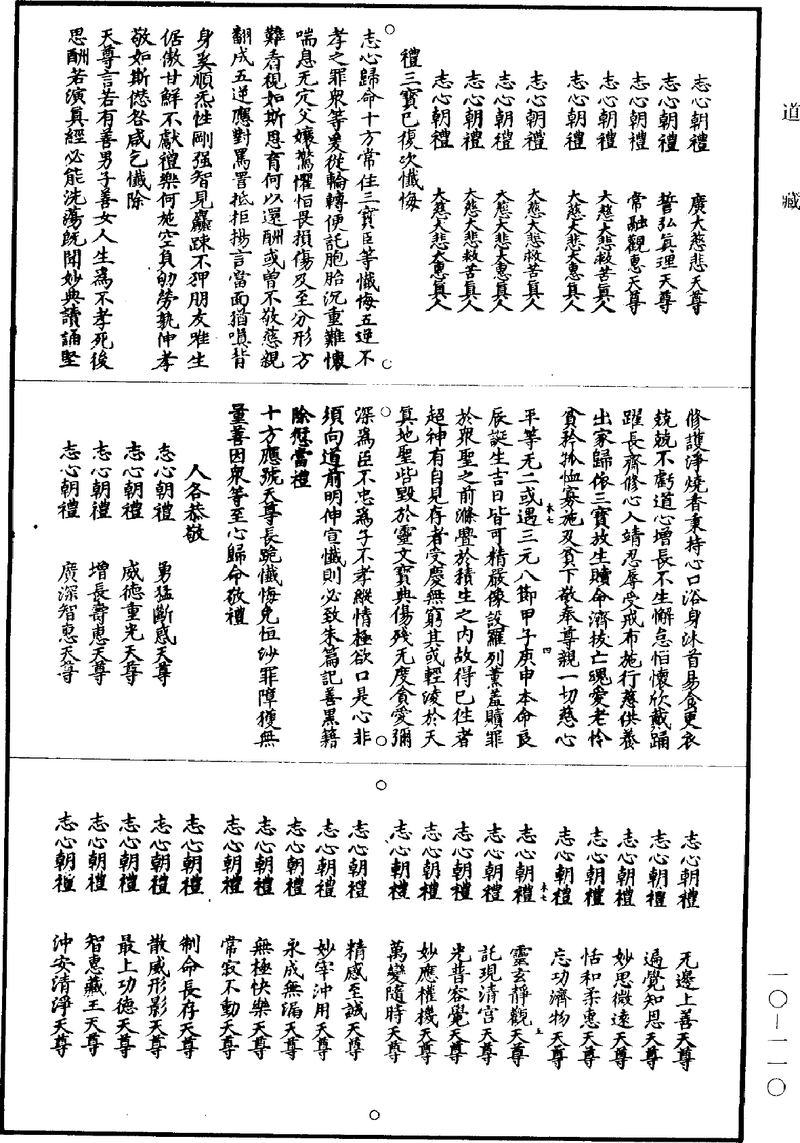 道藏
志心朝禮 廣大慈悲天尊
志心朝禮 誓弘眞理天尊
志心朝禮 常融觀惠天尊
志心朝禮 大慈大悲救苦眞人
志心朝禮 大慈大悲大惠眞人
志心朝禮 大慈大悲救苦眞人
志心朝禮 大慈大悲大惠眞人
志心朝禮 大慈大悲救苦眞人
志心朝禮 大慈大悲大惠眞人
禮三寶已復次懺悔
志心歸命十方常住三寶臣等懺悔五逆不
孝之罪衆等爰從輪轉便託胞胎沉重難懷
喘息无宂父孃驚懼怕畏損傷及至分形方
難看視如斯恩育何以還酬或曾不敬慈親
翻成五逆應對罵詈抵拒揚言當面猶嗔背
身奚順炁性剛强智見麤踈不狎朋友唯生
倨傲甘鮮不獻禮樂何施空負劬勞孰伸孝
敬如斯愆咎咸乞懺除
天尊言若有善男子善女人生爲不孝死後
思酬若演眞經必能洗蕩旣聞妙典讀誦堅
修護淨燒香秉持心口浴身沐首易食更衣
兢兢不虧道心增長不生懈怠怕懷欣戴踊
躍長齊修心人靖忍辱受戒布施行慈供養
出家歸依三寶放生贖命濟拔亡魂愛老怜
貧矜孤恤寡施及貧下敬奉尊親一切慈心
平等无二或遇三元八節甲子庚申本命良
辰誕生吉日皆可精嚴像設羅列薰羞贖罪
於衆聖之前滌釁於積生之内故得已往者
超神有自見存者受慶無窮其或輕淩於天
眞地聖呰毀於靈文寶典傷殘无度貪愛彌
深爲臣不忠爲子不孝縱情極欲口是心非
須向道前明伸宣懺則必致朱篇記善黑籍
除愆當禮
十方應號天尊長跪懺悔免恒沙罪障獲無
量善因衆等至心歸命敬禮
人各恭敬
志心朝禮 勇猛斷惑天尊
志心朝禮 威德重光天尊
志心朝禮 增長壽惠天尊
志心朝禮 廣深智惠天尊
志心朝禮 无邊上善天尊
志心朝禮 過覺知恩天尊
志心朝禮 妙思微遠天尊
志心朝禮 恬和柔惠天尊
志心朝禮 忘功濟物天尊
志心朝禮 靈玄靜觀天尊
志心朝禮 託現清宮天尊
志心朝禮 光普容覺天尊
志心朝禮 妙應權機天尊
志心朝禮 萬變隨時天尊
志心朝禮 精感至誠天尊
志心朝禮 妙宰沖用天尊
志心朝禮 永成無漏天尊
志心朝禮 無極快樂天尊
志心朝禮 常寂不動天尊
志心朝禮 制命長存天尊
志心朝禮 散威形影天尊
志心朝禮 最上功德天尊
志心朝禮 智惠藏王天尊
志心朝禮 沖安清淨天尊
一〇—一一〇